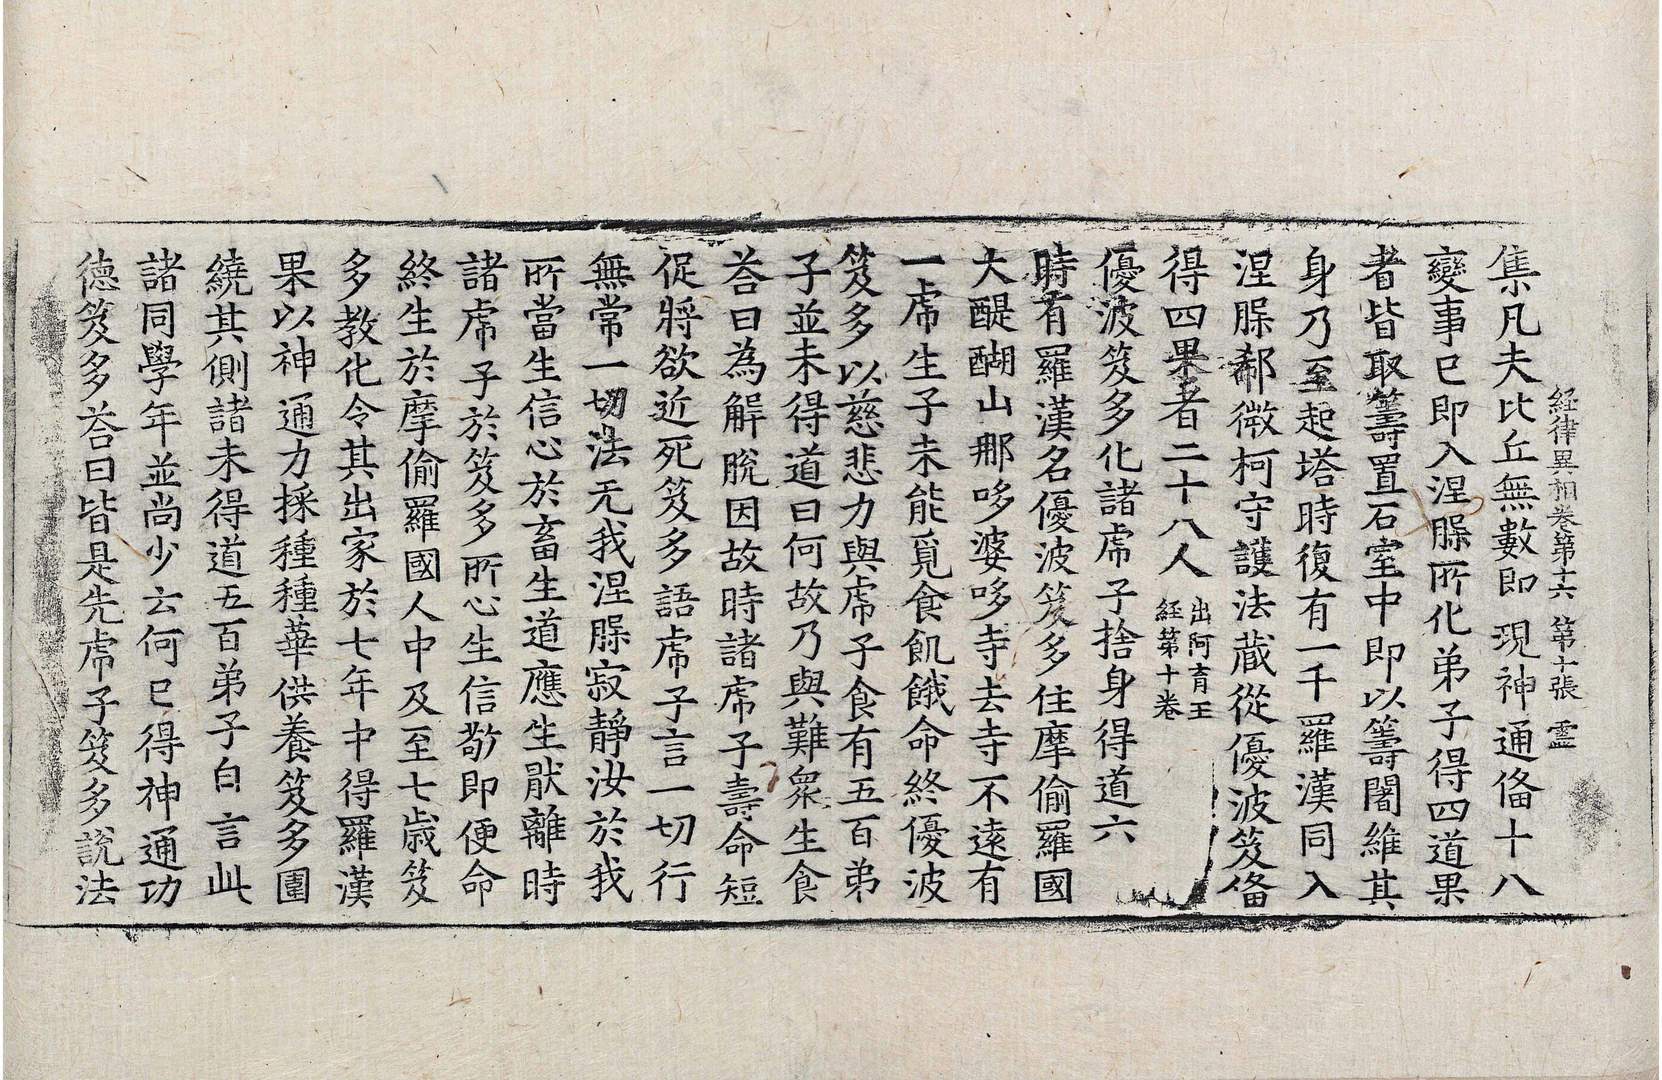 経律異相卷第十六 第十張 靈
集凡夫比丘無數即 現神通俻十八
變事已即入涅槃所化弟子得四道果
者皆取籌置石室中即以籌闍維其
身乃至起塔時復有一千羅漢同入
涅槃郗微柯守護法蔵從優波笈俻
得四果者二十八人 出阿育王
經第十卷
優波笈多化諸虎子捨身得道六
時有羅漢名優波笈多住摩偷羅國
大醍醐山那哆婆哆寺去寺不遠有
一虎生子未能覓食飢餓命終優波
笈多以慈悲力與虎子食有五百弟
子並未得道曰何故乃與難衆生食
荅曰為解脫因故時諸虎子壽命短
促將欲近死笈多語虎子言一切行
無常一切法无我涅槃寂靜汝於我
所當生信心於畜生道應生猒離時
諸虎子於笈多所心生信敬即便命
終生於摩偷羅國人中及至七歳笈
多教化令其出家於七年中得羅漢
果以神通力採種種華供養笈多圍
繞其側諸未得道五百弟子白言此
諸同學年並尚少云何已得神通功
德笈多荅曰皆是先虎子笈多說法